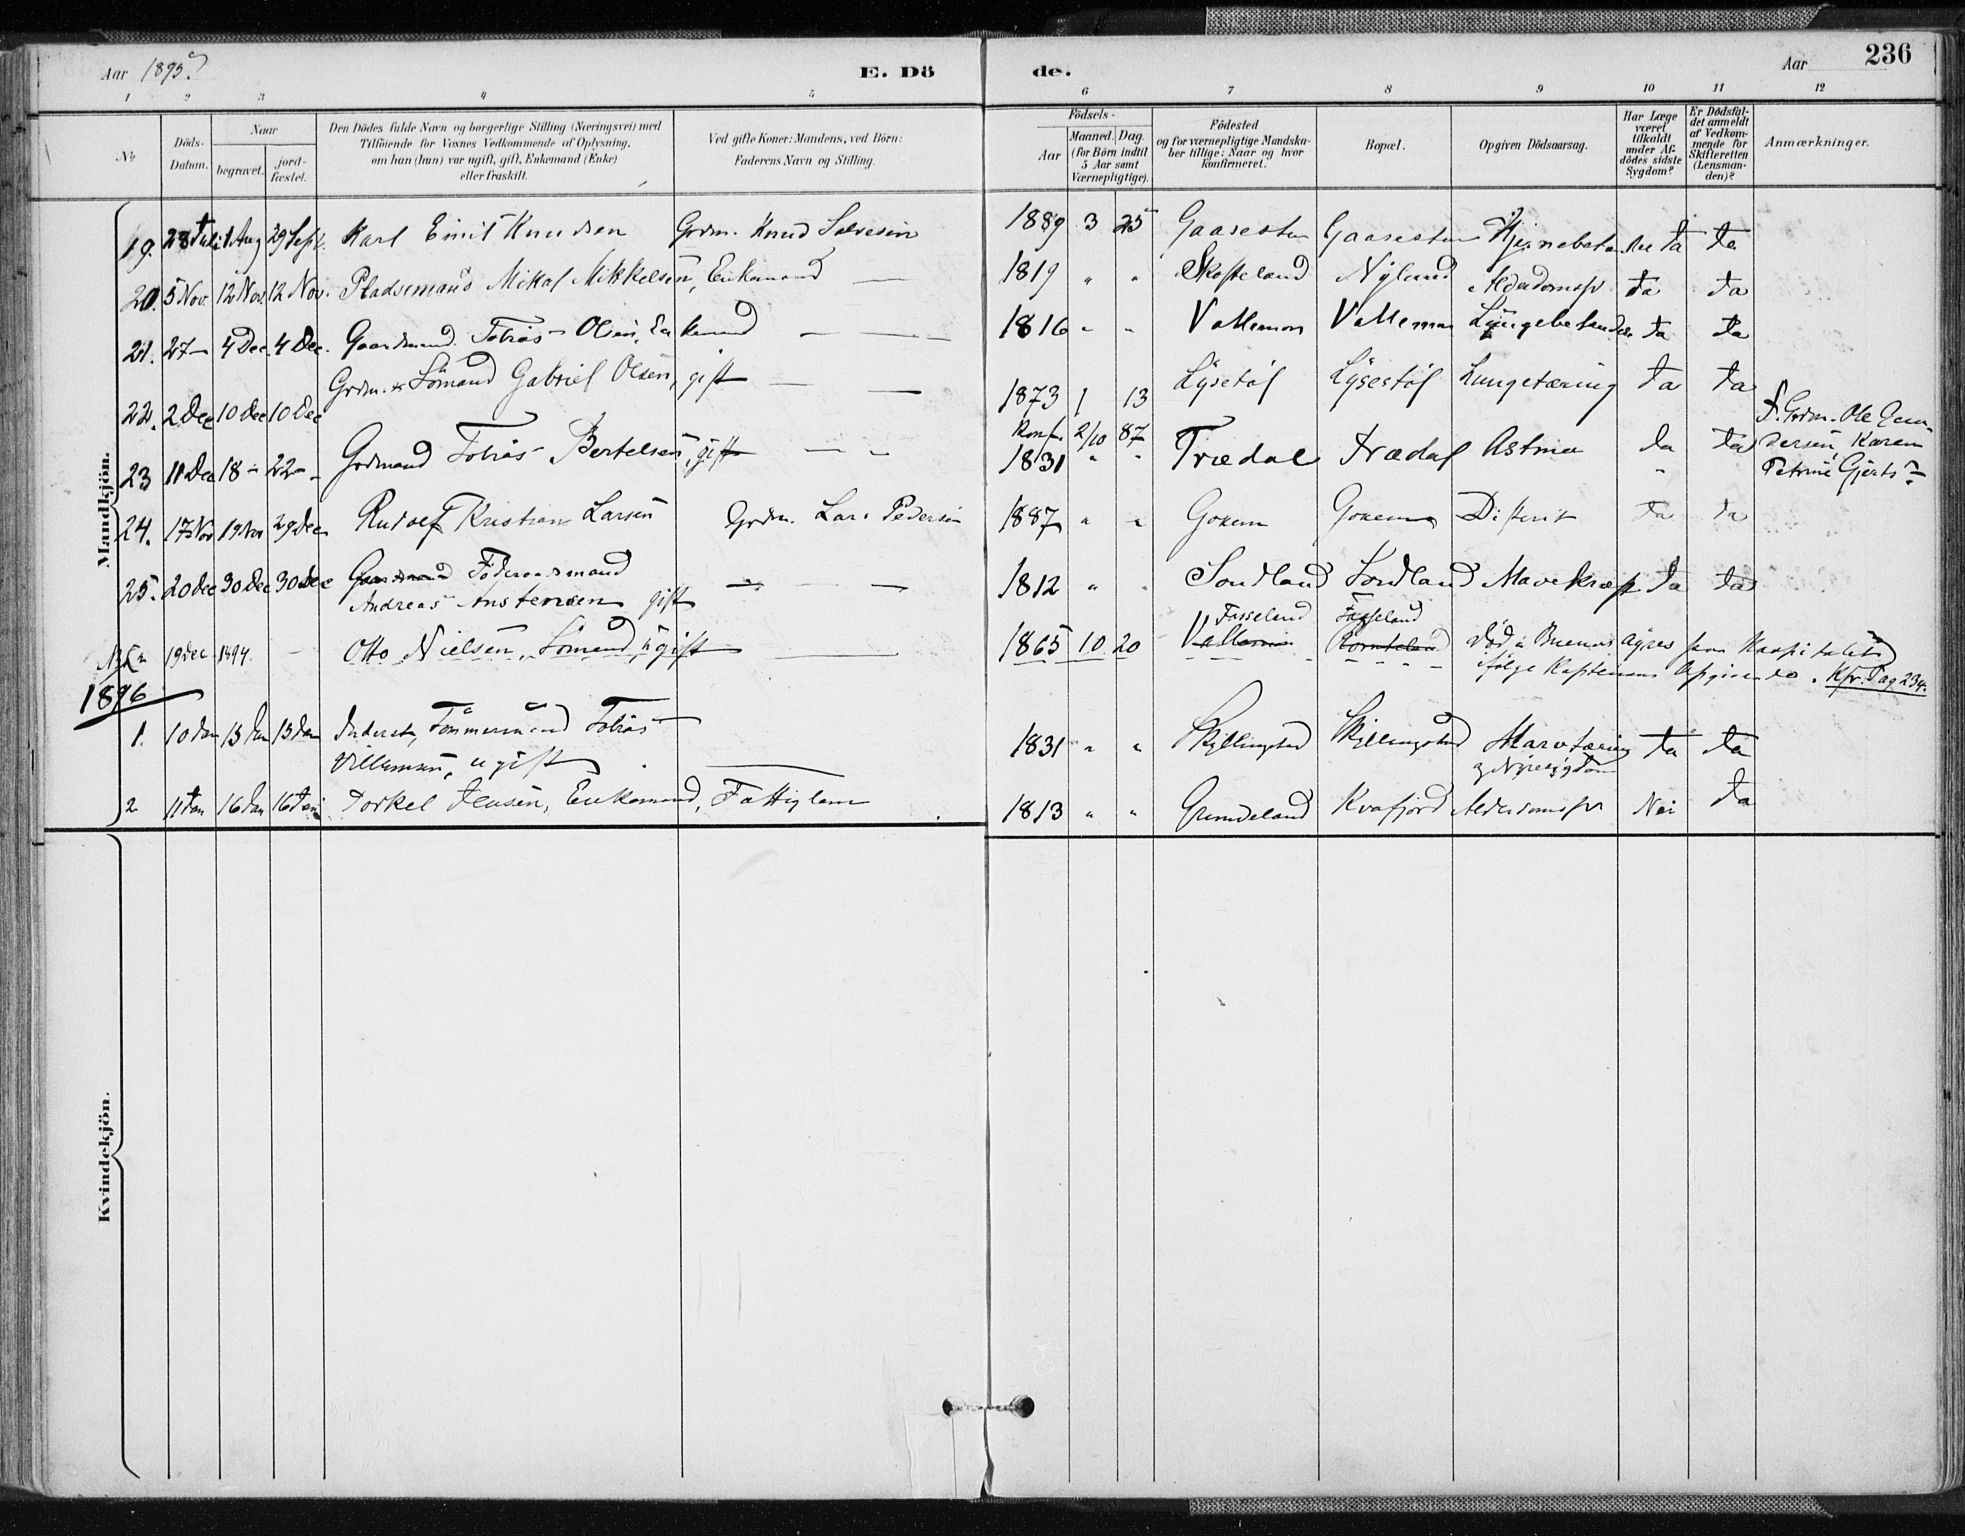 Aar 1895. E. Dö de. Aar 236
1 2 3 4 5 6 7 8 9 10 11 12
No
Döds-Datum.
Naar
begravet.
jord-fæstet.
Den Dödes fulde Navn og borgerlige Stilling (Næringsvei) med
Tilföiende for Voxnes Vedkommende af Oplysning,
om han (hun) var ugift, gift, Enkemand (Enke)
eller fraskilt.
Ved gifte Koner: Mandens, ved Börn:
Faderens Navn og Stilling.
Födsels-
Aar
Maaned. Dag.
(for Börn indtil
5 Aar samt
Værnepligtige).
Födested
og for værnepligtige Mandska-
ber tillige: Naar og hvor
konfirmeret.
Bopæl.
Opgiven Dödsaarsag.
Har Læge
været
tilkaldt
under Af-
dödes sidste
Sygdom?
Er Dödsfal-
det anmeldt
af Vedkom-
mende for
Skifteretten
(Lensman-
den)?
Anmærkninger.
Mandkjön.
19. 28 Juli 1 Aug 29 Sept. Karl Emil Knudsen Grdm. Knud Salvesen 1889 3 25 Gaasesten Gaasesten Hjernebetændelse Ja Ja
20. 5 Nov. 12 Nov. 12 Nov. Pladsemand Mikal Mikkelsen, Enkemand — 1819 " " Skofteland Nyland Alderdomssv Ja Ja
21. 27 — 4 Dec. 4 Dec. Gaardmand Tobias Olsen, Enkemand — — 1816 " " Vallemon Vallemon Lungebetændelse Ja Ja
Grdm. & Sömand Gabriel Olsen, gift — —
22. 2 Dec 10 Dec 10 Dec 1873 1 13 Lÿsestöl Lÿsestöl Lungetæring Ja Ja
Konf. 2/10 87
F. Grdm. Ole Gun-
dersen, Karen
Petrine Gjerts.
23 11 Dec 18 - 22 - Grdmand Tobias Bertelsen, gift — — 1831 " " Trædal Trædal Astma Ja Ja
24. 17 Nov 19 Nov 29 Dec Rudolf Kristian Larsen Grdm. Lars Pedersen 1887 " " Difterit Ja Ja
25. 20 Dec 30 Dec 30 Dec Gaardmand Föderaadsmand — — 1812 " " Sordland Sordland Mavekræft Ja Ja
Andreas Anstensen gift
Fasseland Fasseland
19 Dec 1894. — Otto Nielsen, Sömand, ugift — 1865 10 20 Vallemon Död i Buenos Ayres paa Hospitalet
ifölge Kapteinens Opgivende. Kfr. Pag 234.
1896
1. 10 Jan 13 Jan 13 Jan Inderst, Tömmermand Tobias 1831 " " Skjillingstad Skjillingstad Marvtæring Ja Ja
Villumsen, ugift — & Nyresygdom
2 11 Jan 16 Jan 16 Jan Torkel Jensen, Enkemand, Fattiglem 1813 " " Grundeland Kvafjord Alderdomssv Nei Ja
Kvindekjön.